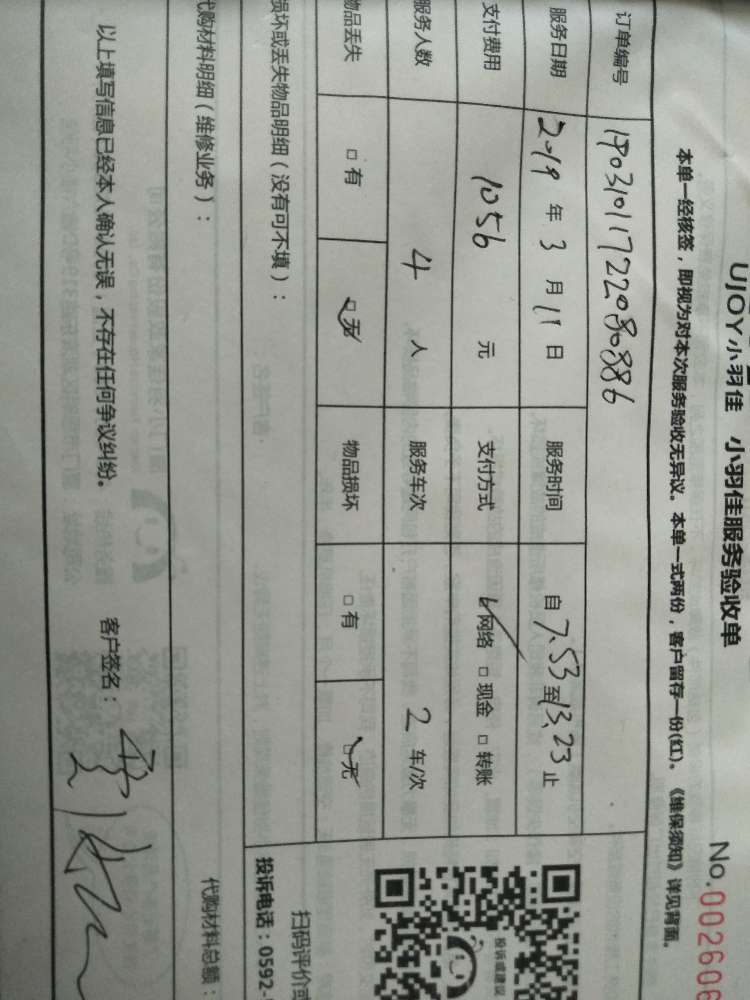 UJOY小羽佳 小羽佳服务验收单
No.002606
本单一经核签，即视为对本次服务验收无异议。本单一式两份，客户留存一份(红)。《维保须知》详见背面。
订单编号 19031011722080886
服务日期 2019 年 3 月 11 日 服务时间 自 7.53 至 13.23 止
支付费用 1056 元 支付方式 ☑网络 □现金 □转账
服务人数 4 人 服务车次 2 车/次
物品丢失 □有 ☑无 物品损坏 □有 ☑无
损坏或丢失物品明细（没有可不填）：
投诉或建议
扫码评价或
投诉电话：0592-
代购材料明细（维修业务）：
代购材料总额：
以上填写信息已经本人确认无误，不存在任何争议纠纷。 客户签名：